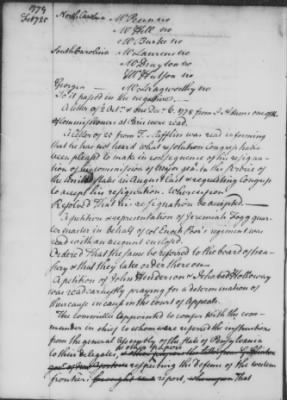 1779
North Carolina Mr Penn no
Mr Hill no
Mr Burke no
South Carolina Mr Laurens no
Mr Drayton no
Mr Hutson no
Georgia Mr Langworthy no
So it passed in the negative.
A letter of 2d Octr & one Decr 6. 1778 from J. Adams one of the
commissioners at Paris were read.
A letter of 20 from T. Mifflin was read informing
that he has not heard what resolution Congress have
been pleased to make in consequence of his resigna
tion of his commission of Major genl in the service of
the United States in August last & requesting Congress
to accept his resignation. Whereupon
Resolved That his resignation be accepted.
A petition & representation of Jeremiah Fogg quar
ter master in behalf of col Enoch Poor's regiment was
read with an account enclosed.
Ordered That the same be referred to the board of trea
sury & that they take order thereon.
A petition of John Henderson & John Holloway
was read earnestly praying for a determination of
their cause in court of Appeals.
The committee appointed to confer with the com
mander in chief to whom were referred the instructions
from the general Assembly of the State of Pensylvania
to their delegates
respecting the defence of the western
frontier brought in a report, whereupon That